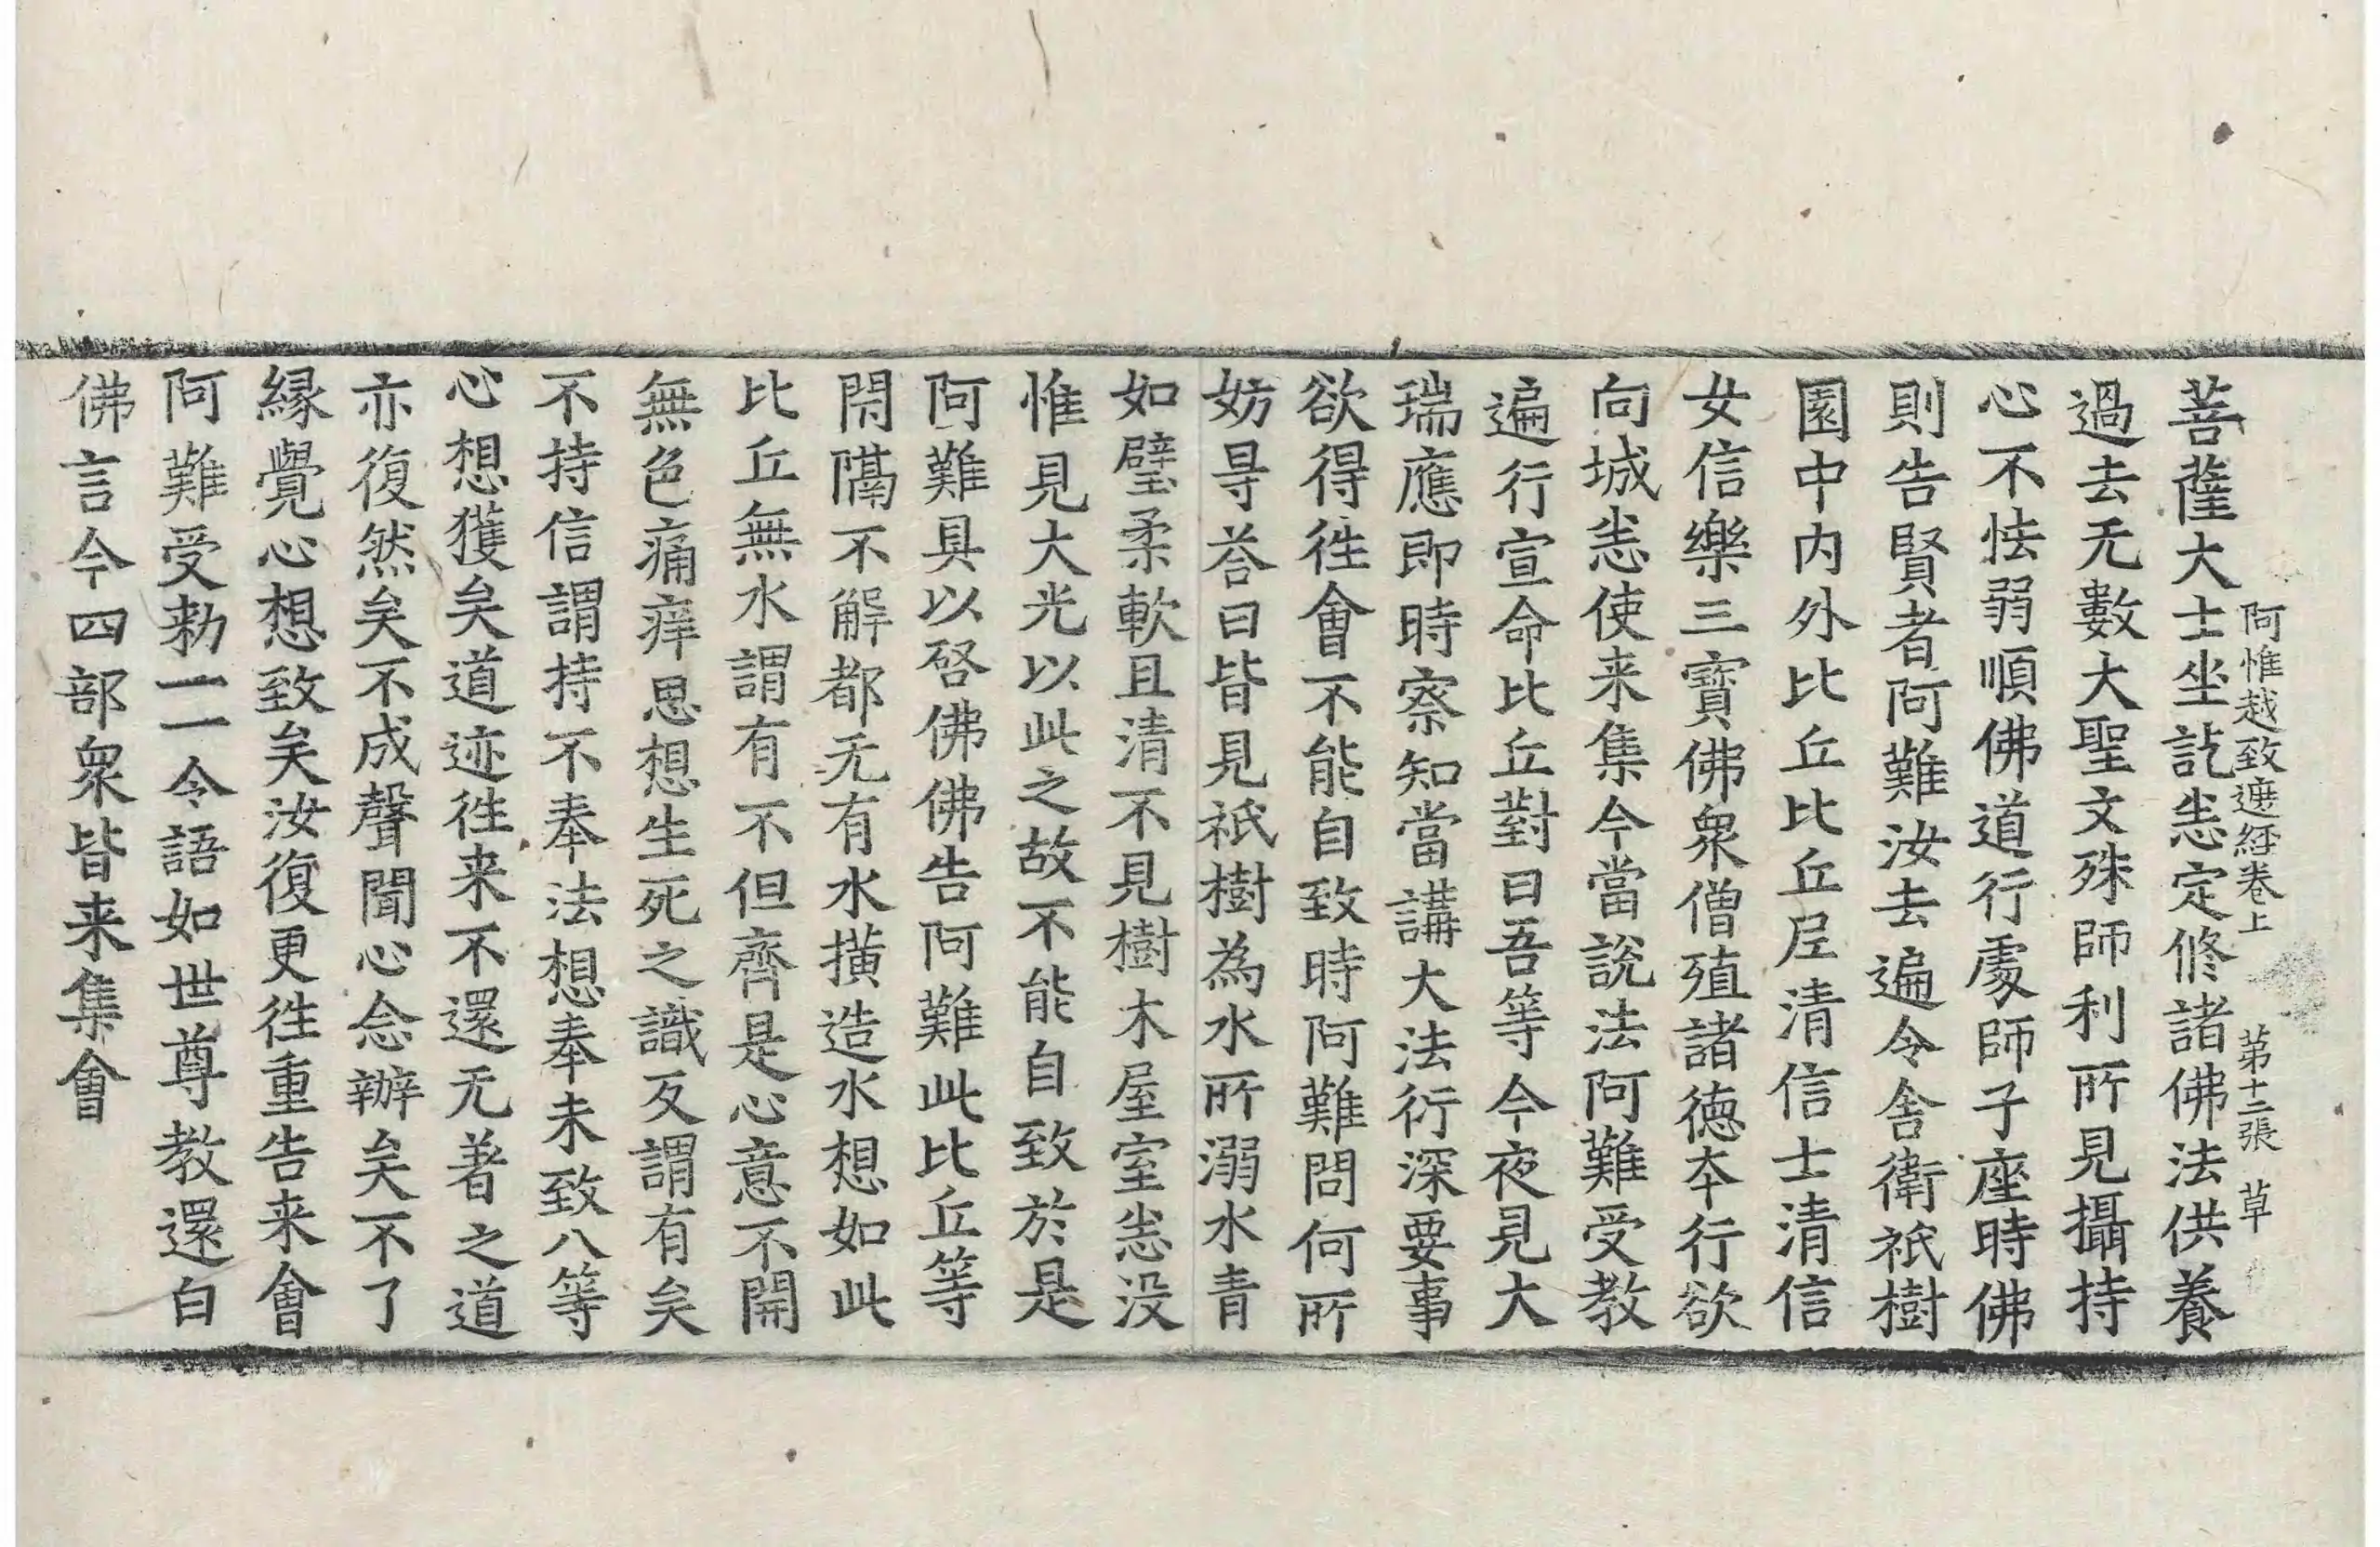 阿惟越致遮經卷上　第十二張　草
菩薩大士坐訖悉定修諸佛法供養
過去无數大聖文殊師利所見攝持
心不怯弱順佛道行處師子座時佛
則告賢者阿難汝去遍令舍衛祇樹
園中内外比丘比丘尼清信士清信
女信樂三寶佛衆僧殖諸德本行欲
向城悉使来集今當說法阿難受教
遍行宣命比丘對曰吾等今夜見大
瑞應即時察知當講大法衍深要事
欲得往會不能自致時阿難問何所
妨㝵荅曰皆見祇樹為水所溺水青
如璧柔軟且清不見樹木屋室悉没
惟見大光以此之故不能自致於是
阿難具以啓佛佛告阿難此比丘等
閇隔不解都无有水撗造水想如此
比丘無水謂有不但齊是心意不開
無色痛痒思想生死之識反謂有矣
不持信謂持不奉法想奉未致八等
心想獲矣道迹往来不還无著之道
亦復然矣不成聲聞心念辦矣不了
縁覺心想致矣汝復更往重告来會
阿難受勑一一令語如世尊教還白
佛言今四部衆皆来集會